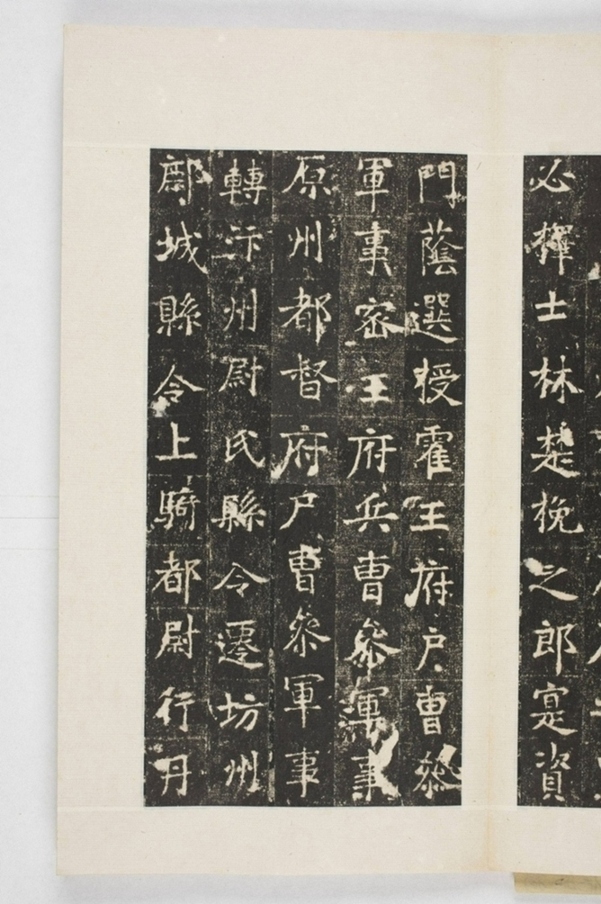 必擇士林楚挽之郎寔資
門蔭選授霍王府戶曹叅
軍事密王府兵曹叅軍事
原州都督府戶曹叅軍事
轉汴州尉氏縣令遷坊州
鄜城縣令上騎都尉行丹